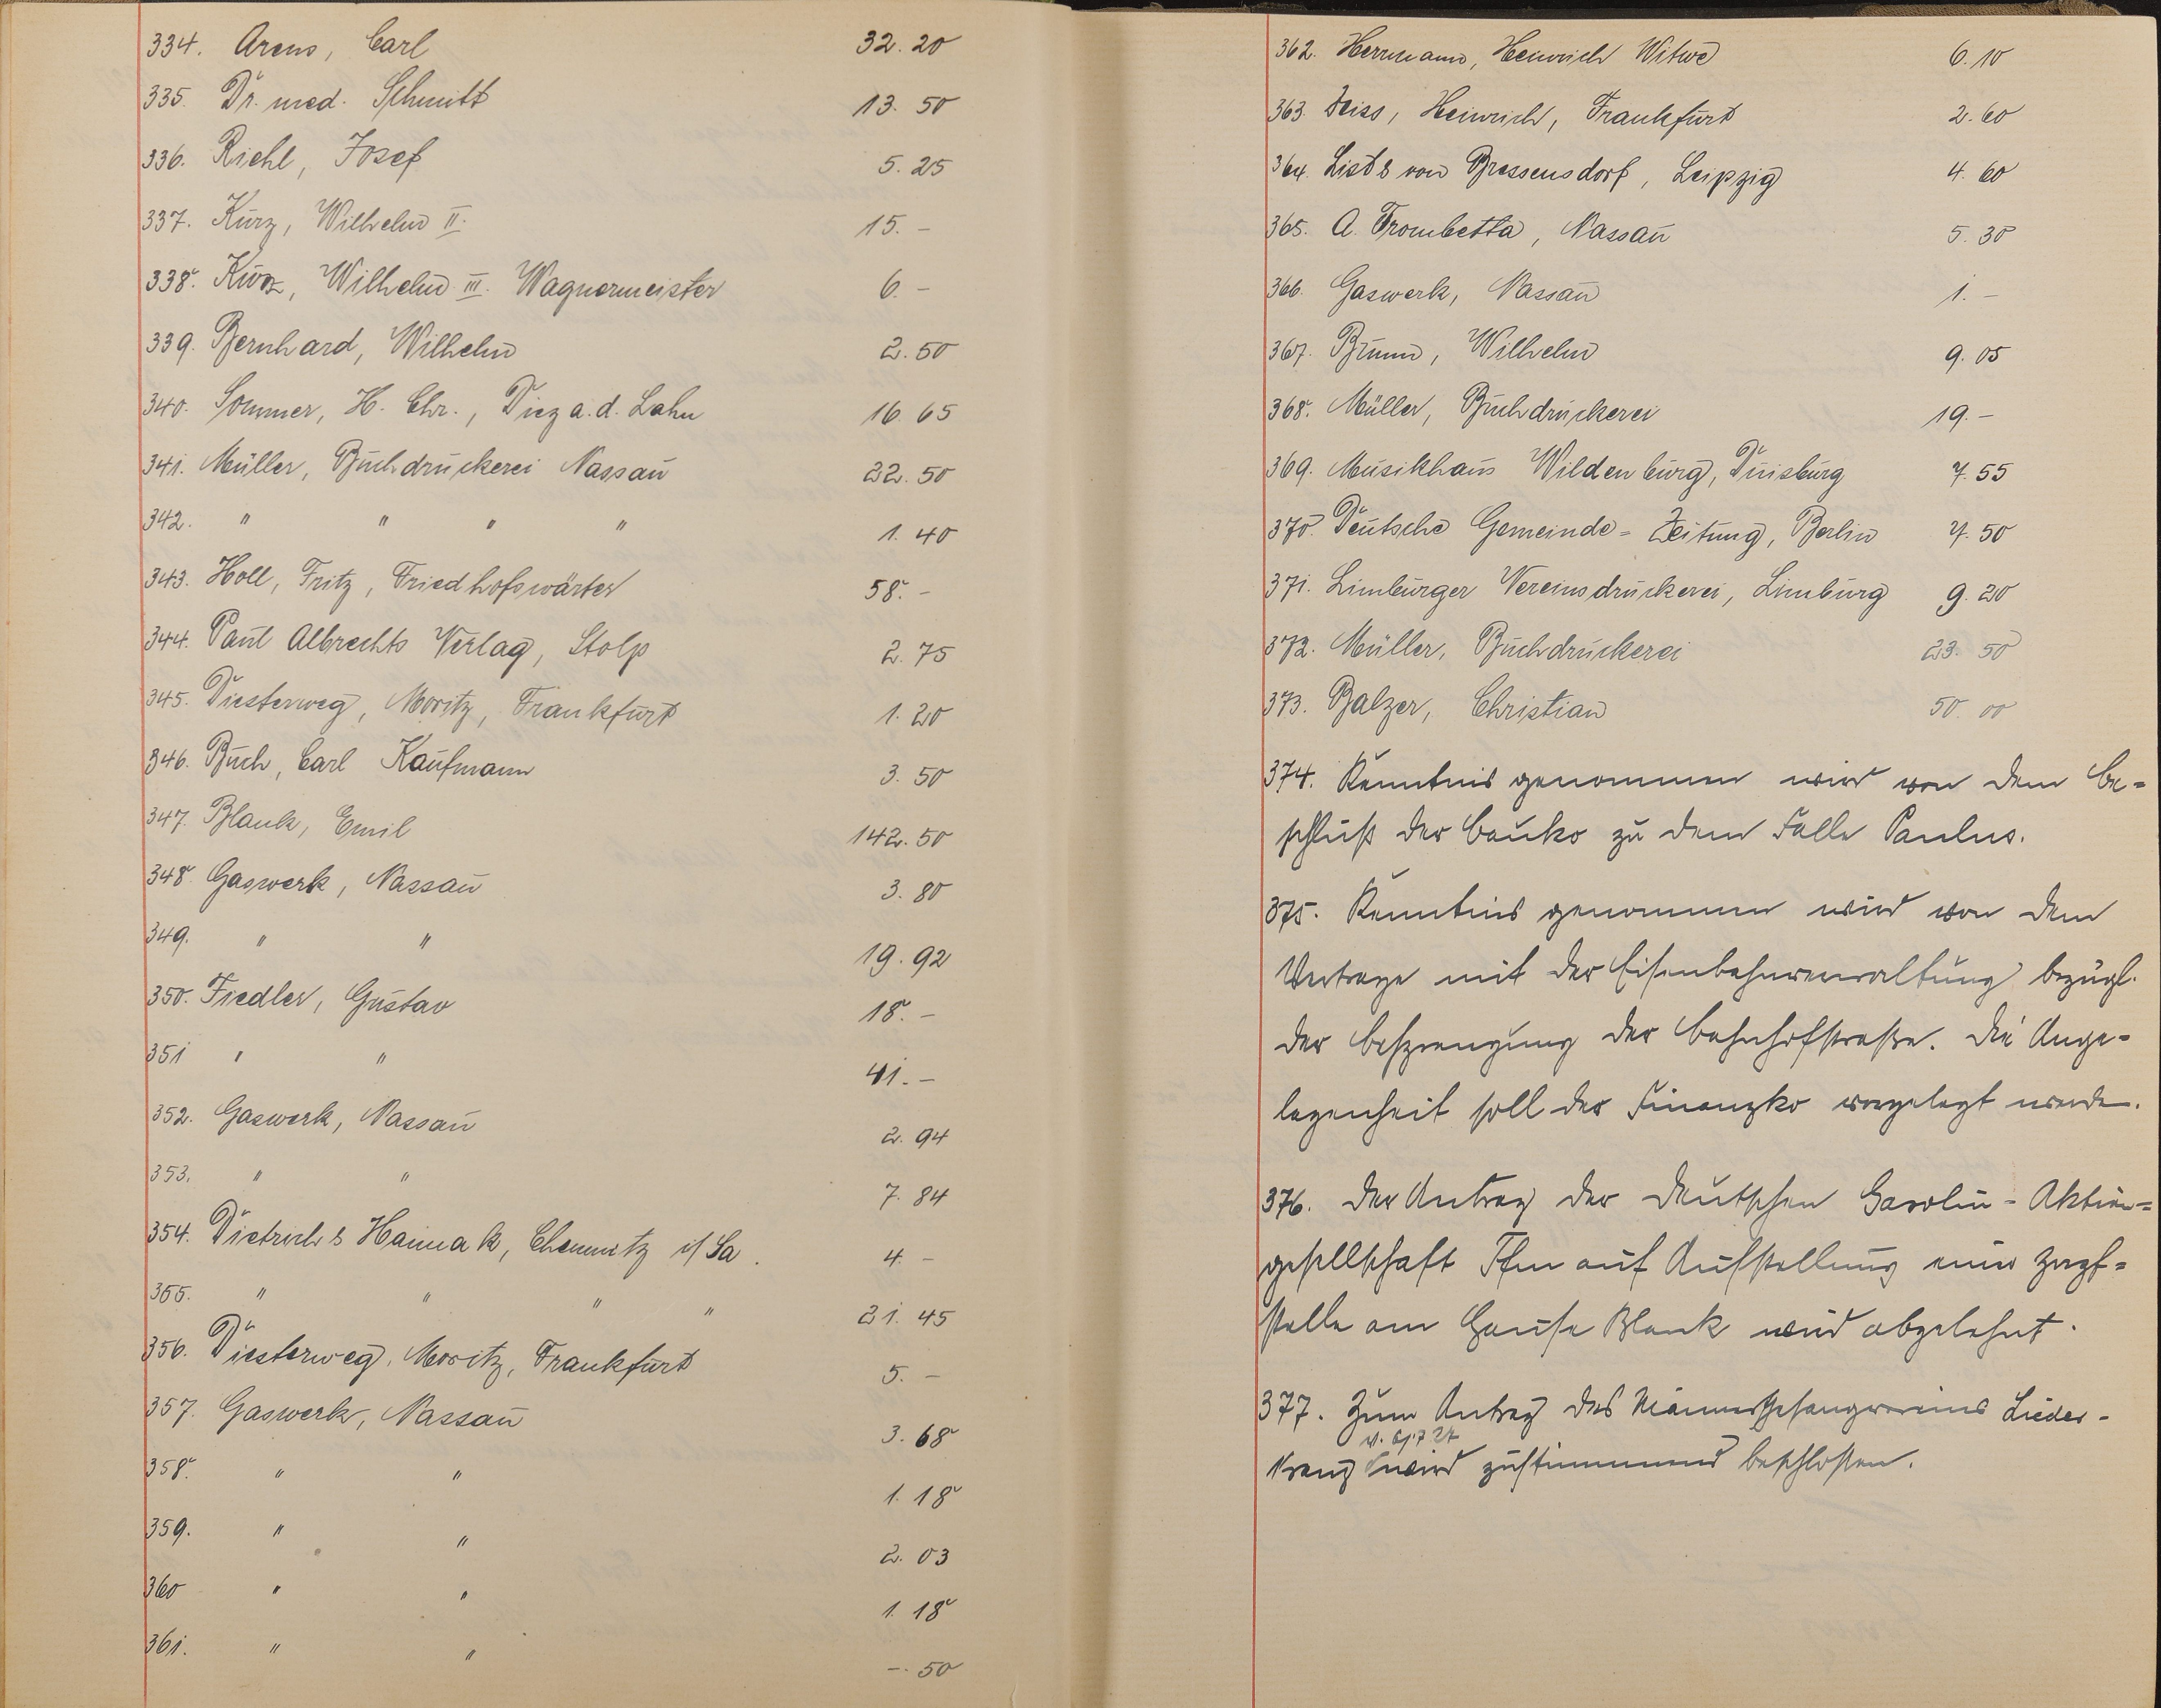 334. Arens, Carl 32.20
335. Dr. med. Schmitt 13.50
336. Riehl, Josef 5.25
337. Kurz, Wilhelm II. 15.-
338. Kurz, Wilhelm III. Wagnermeister 6.-
339. Bernhard, Wilhelm 2.50
340. Sommer, H. Chr., Diez a.d. Lahn 16.65
341. Müller, Buchdruckerei Nassau 22.50
342. " " " " 1.40
343. Holl, Fritz, Friedhofswärter 58.-
344. Paul Albrechts Verlag, Stolp 2.75
345. Diesterweg, Moritz, Frankfurt 1.20
346. Buch, Carl Kaufmann 3.50
347. Blank, Emil 142.50
348. Gaswerk, Nassau 3.80
349. " " 19.92
350. Fiedler, Gustav 18.-
351 " " 41.-
352. Gaswerk, Nassau 2.94
353. " " 7.84
354. Dietrich & Hannak, Chemnitz i/Sa. 4.-
355. " " " " 21.45
356. Diesterweg, Moritz, Frankfurt 5.-
357. Gaswerk, Nassau 3.68
358. " " 1.18
359. " " 2.03
360 " " 1.18
361. " " -.50
362. Herrmann, Heinrich Witwe 6.10
363. Zeiss, Heinrich, Frankfurt 2.60
364. List & von Bressensdorf, Leipzig 4.60
365. A. Trombetta, Nassau 5.30
366. Gaswerk, Nassau 1.-
367. Brunn, Wilhelm 9.05
368. Müller, Buchdruckerei 19.-
369. Musikhaus Wildenburg, Duisburg 7.55
370. Deutsche Gemeinde-Zeitung, Berlin 7.50
371. Limburger Vereinsdruckerei, Limburg 9.20
372. Müller, Buchdruckerei 23.50
373. Balzer, Christian 50.00
374. Kenntnis genommen wird von dem Be-
schluß der Bauko zu dem Falle Paulus.
375. Kenntnis genommen wird von dem
Vertrage mit der Eisenbahnverwaltung bezügl.
der Besprengung der Bahnhofstraße. Die Ange-
legenheit soll der Finanzko vorgelegt werden.
376. Der Antrag der Deutschen Gasolin-Aktien-
gesellschaft Ffm auf Aufstellung einer Zapf-
stelle am Hause Blank wird abgelehnt.
377. Zum Antrag des Männergesangvereins Lieder-
kranz wird zustimmend beschlossen.